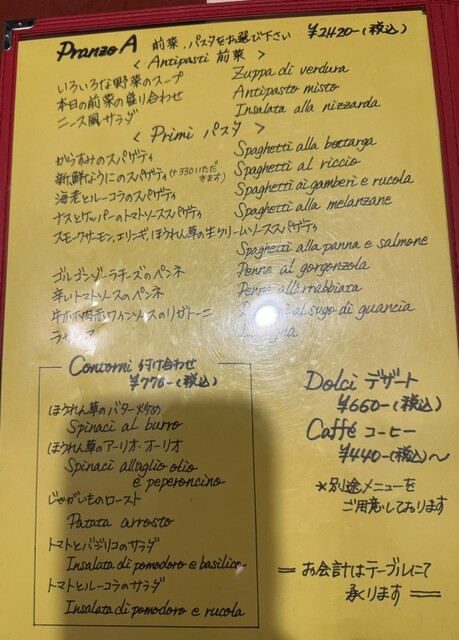 Pranzo A 前菜、パスタをお選び下さい ¥2420-(税込)
< Antipasti 前菜 >
いろいろな野菜のスープ Zuppa di verdura
本日の前菜の盛り合わせ Antipasto misto
ニース風サラダ Insalata alla nizzarda
< Primi パスタ >
からすみのスパゲティ Spaghetti alla bottarga
新鮮なうにのスパゲティ(+330いただきます) Spaghetti al riccio
海老とルーコラのスパゲティ Spaghetti ai gamberi e rucola
ナスとケッパーのトマトソーススパゲティ Spaghetti alla melanzane
スモークサーモン、エリンギ、ほうれん草の生クリームソーススパゲティ
Spaghetti alla panna e salmone
ゴルゴンゾーラチーズのペンネ Penne al gorgonzola
辛いトマトソースのペンネ Penne all'arrabbiata
牛ホホ肉赤ワインソースのリガトーニ al sugo di guancia
Contorni 付け合わせ
¥770-(税込)
ほうれん草のバター炒め
Spinaci al burro
ほうれん草のアーリオ・オーリオ
Spinaci all'aglio olio
e peperoncino
じゃがいものロースト
Patata arrosto
トマトとバジリコのサラダ
Insalata di pomodoro e basilico
トマトとルーコラのサラダ
Insalata di pomodoro e rucola
Dolci デザート
¥660-(税込)
Caffé コーヒー
¥440-(税込)〜
*別途メニューを
ご用意しております
= お会計はテーブルにて
承ります =